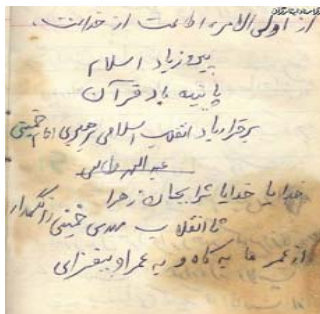 از اولی الامر، اطاعت از خداست.
پیروز باد اسلام
پاینده باد قرآن
برقرار باد انقلاب اسلامی برهبری امام خمینی
خدایا خدایا ترا بجان زهرا
تا انقلاب مهدی خمینی را نگهدار
از عمر ما بکاه و به عمر او بیفزای